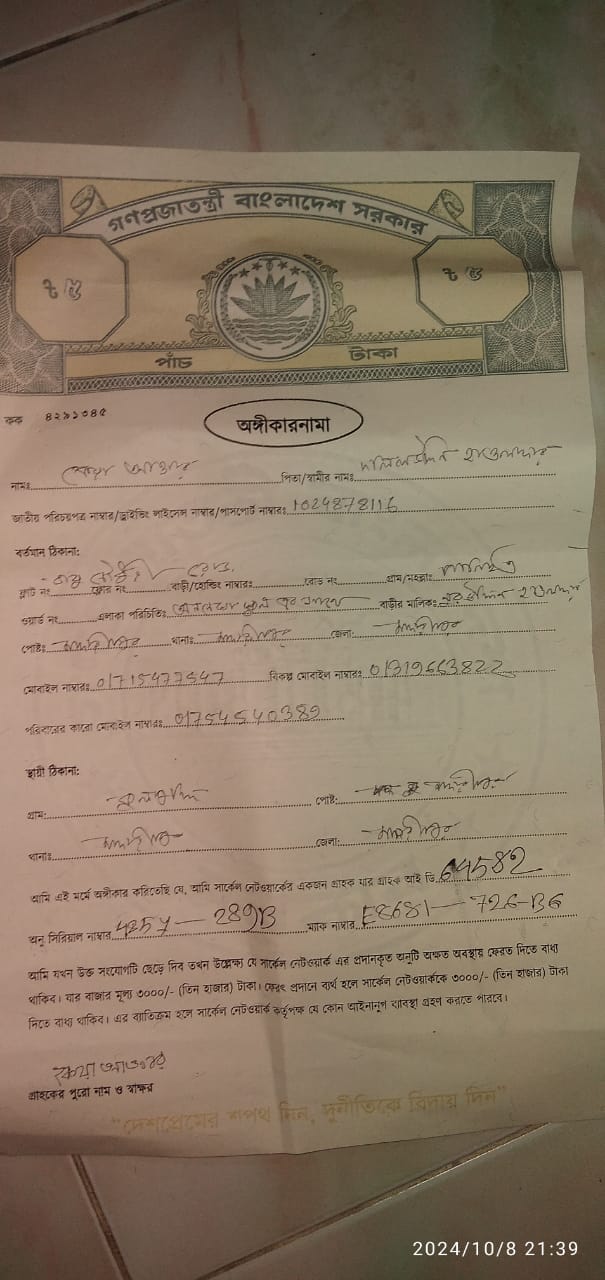 গণপ্রজাতন্ত্রী বাংলাদেশ সরকার
৳ ৫ ৳ ৫
পাঁচ টাকা
কক ৪২৯১৩৪৫
অঙ্গীকারনামা
নামঃ আক্তার পিতা/স্বামীর নামঃ হাওলাদার
জাতীয় পরিচয়পত্র নাম্বার/ড্রাইভিং লাইসেন্স নাম্বার/পাসপোর্ট নাম্বারঃ 1024878116
বর্তমান ঠিকানা:
ফ্লাট নং ফ্লোর নং বাড়ী/হোল্ডিং নাম্বারঃ রোড নং গ্রাম/মহল্লাঃ
ওয়ার্ড নং এলাকা পরিচিতিঃ বাড়ীর মালিকঃ হাওলাদার
পোষ্টঃ মাদারীপুর থানাঃ মাদারীপুর জেলা: মাদারীপুর
মোবাইল নাম্বারঃ 01715477547 বিকল্প মোবাইল নাম্বারঃ 01319663822
পরিবারের কারো মোবাইল নাম্বারঃ 01754540389
স্থায়ী ঠিকানা:
গ্রাম: পোষ্ট: মাদারীপুর
থানাঃ মাদারীপুর জেলা: মাদারীপুর
আমি এই মর্মে অঙ্গীকার করিতেছি যে, আমি সার্কেল নেটওয়ার্কের একজন গ্রাহক যার গ্রাহক আই ডি 64582
অনু সিরিয়াল নাম্বার 4257 - 289B ম্যাক নাম্বার E8681 - 726-BG
আমি যখন উক্ত সংযোগটি ছেড়ে দিব তখন উল্লেক্ষ্য যে সার্কেল নেটওয়ার্ক এর প্রদানকৃত অনুটি অক্ষত অবস্থায় ফেরত দিতে বাধ্য
থাকিব। যার বাজার মূল্য ৩০০০/- (তিন হাজার) টাকা। ফেরৎ প্রদানে ব্যর্থ হলে সার্কেল নেটওয়ার্ককে ৩০০০/- (তিন হাজার) টাকা
দিতে বাধ্য থাকিব। এর ব্যতিক্রম হলে সার্কেল নেটওয়ার্ক কর্তৃপক্ষ যে কোন আইনানুগ ব্যবস্থা গ্রহণ করতে পারবে।
আক্তার
গ্রাহকের পুরো নাম ও স্বাক্ষর
"দেশপ্রেমের শপথ নিন, দুর্নীতিকে বিদায় দিন"
2024/10/8 21:39